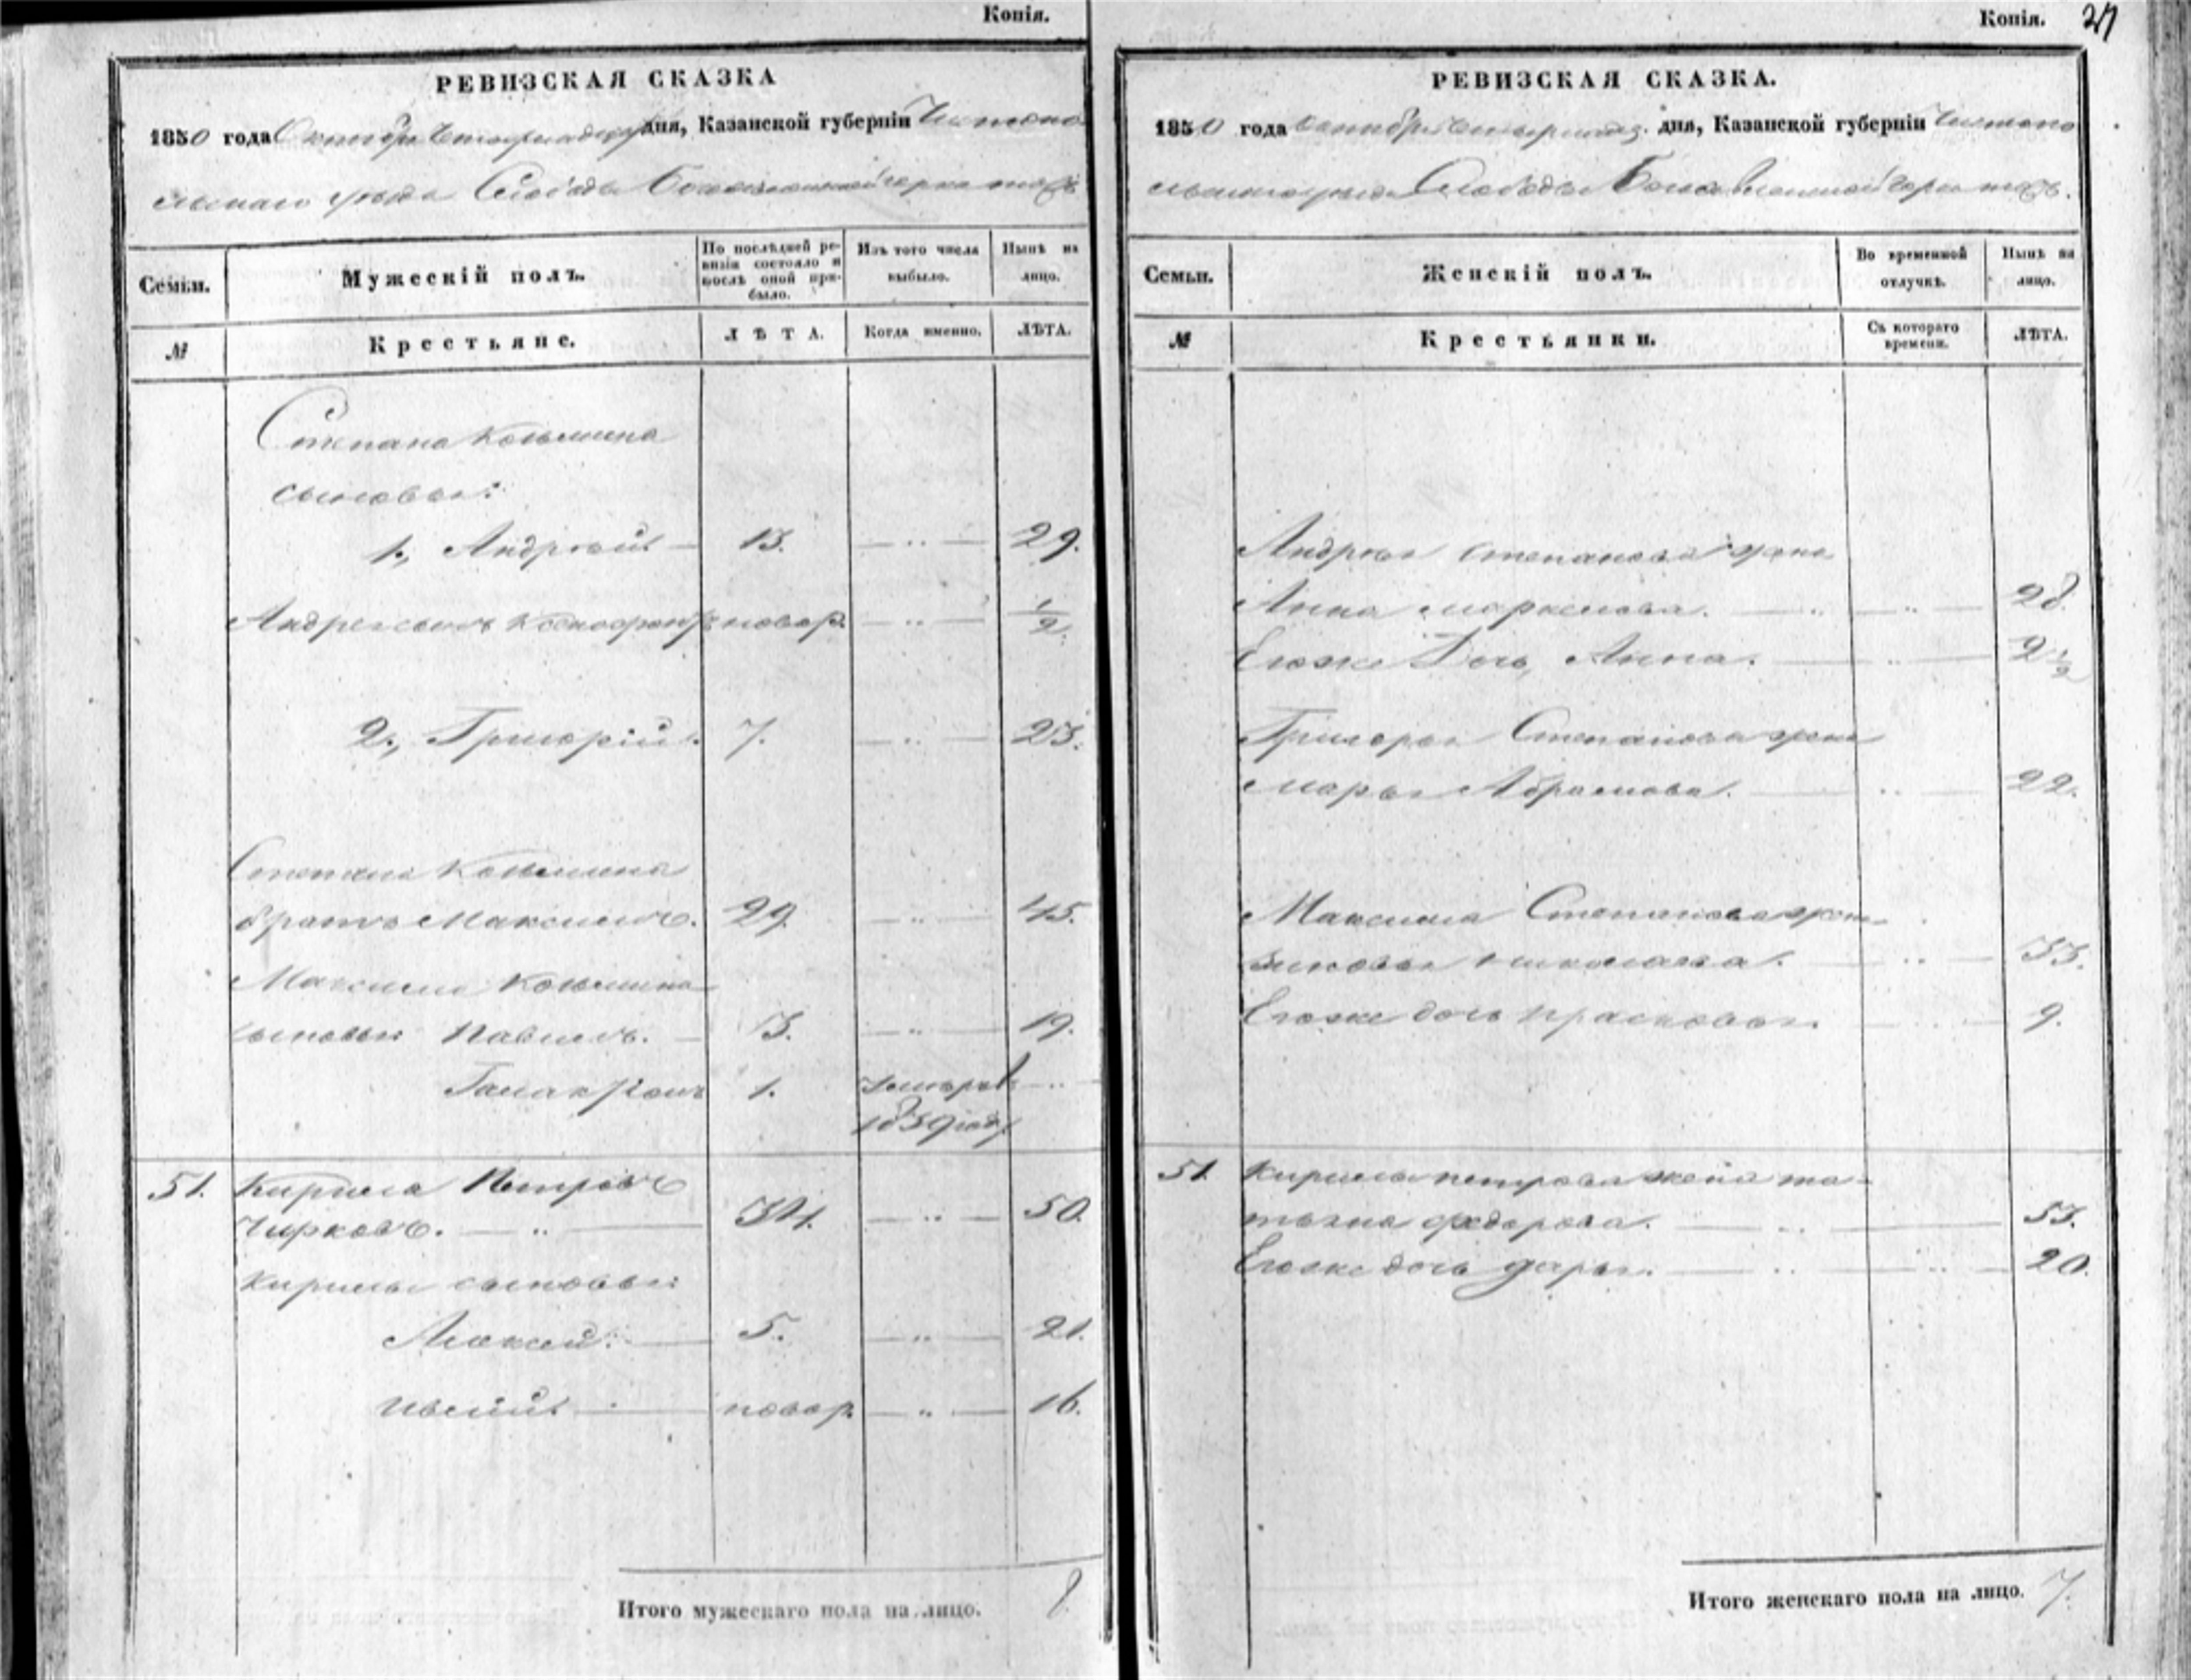 Копія.
РЕВИЗСКАЯ СКАЗКА
1850 года Октября дня, Казанской губерніи Чистопо
льскаго уѣзда Слободы
Семьи.
Мужескій полъ.
По послѣдней ре-
визіи состояло и
послѣ оной при-
было.
Изъ того числа
выбыло.
Нынѣ на
лицо.
№
Крестьяне.
ЛѢТА.
Когда именно.
ЛѢТА.
Степана Козьмина
сыновья:
1., Андрей 13. — „ — 29.
Андрея сынъ Ксенофонтъ новор. — „ — 1/2
2., Григорій. 7. — „ — 23.
Степана Козьмина
братъ Максимъ. 29. — „ — 45.
Максима Козьмина
сыновья Павелъ. 3. — „ — 19.
1. умеръ — „ —
1839 году
51. Кирила Петровъ
Чирковъ. — „ — 34. — „ — 50.
Кирилы сыновья:
Алексей. 5. — „ — 21.
новор. — „ — 16.
Итого мужескаго пола на лицо. 8.
Копія. 27
РЕВИЗСКАЯ СКАЗКА.
1850 года Октября дня, Казанской губерніи Чистопо
льскаго уѣзда Слободы
Семьи.
Женскій полъ.
Во временной
отлучкѣ.
Нынѣ на
лицо.
№
Крестьянки.
Съ котораго
времени.
ЛѢТА.
Андрея Степанова жена
Анна Маркелова. — „ — „ — 28.
Егоже дочь, Анна. — „ — 2 1/2
Григорья Степанова жена
Марья Абрамова. — „ — 22.
Максима Степанова жена
Зиновья Николаева. — „ — 33.
Егоже дочь Прасковья. — „ — 9.
51. Кирилы Петрова жена Та-
тьяна Федорова. — „ — 53.
Егоже дочь Дарья. — „ — „ — 20.
Итого женскаго пола на лицо. 7.